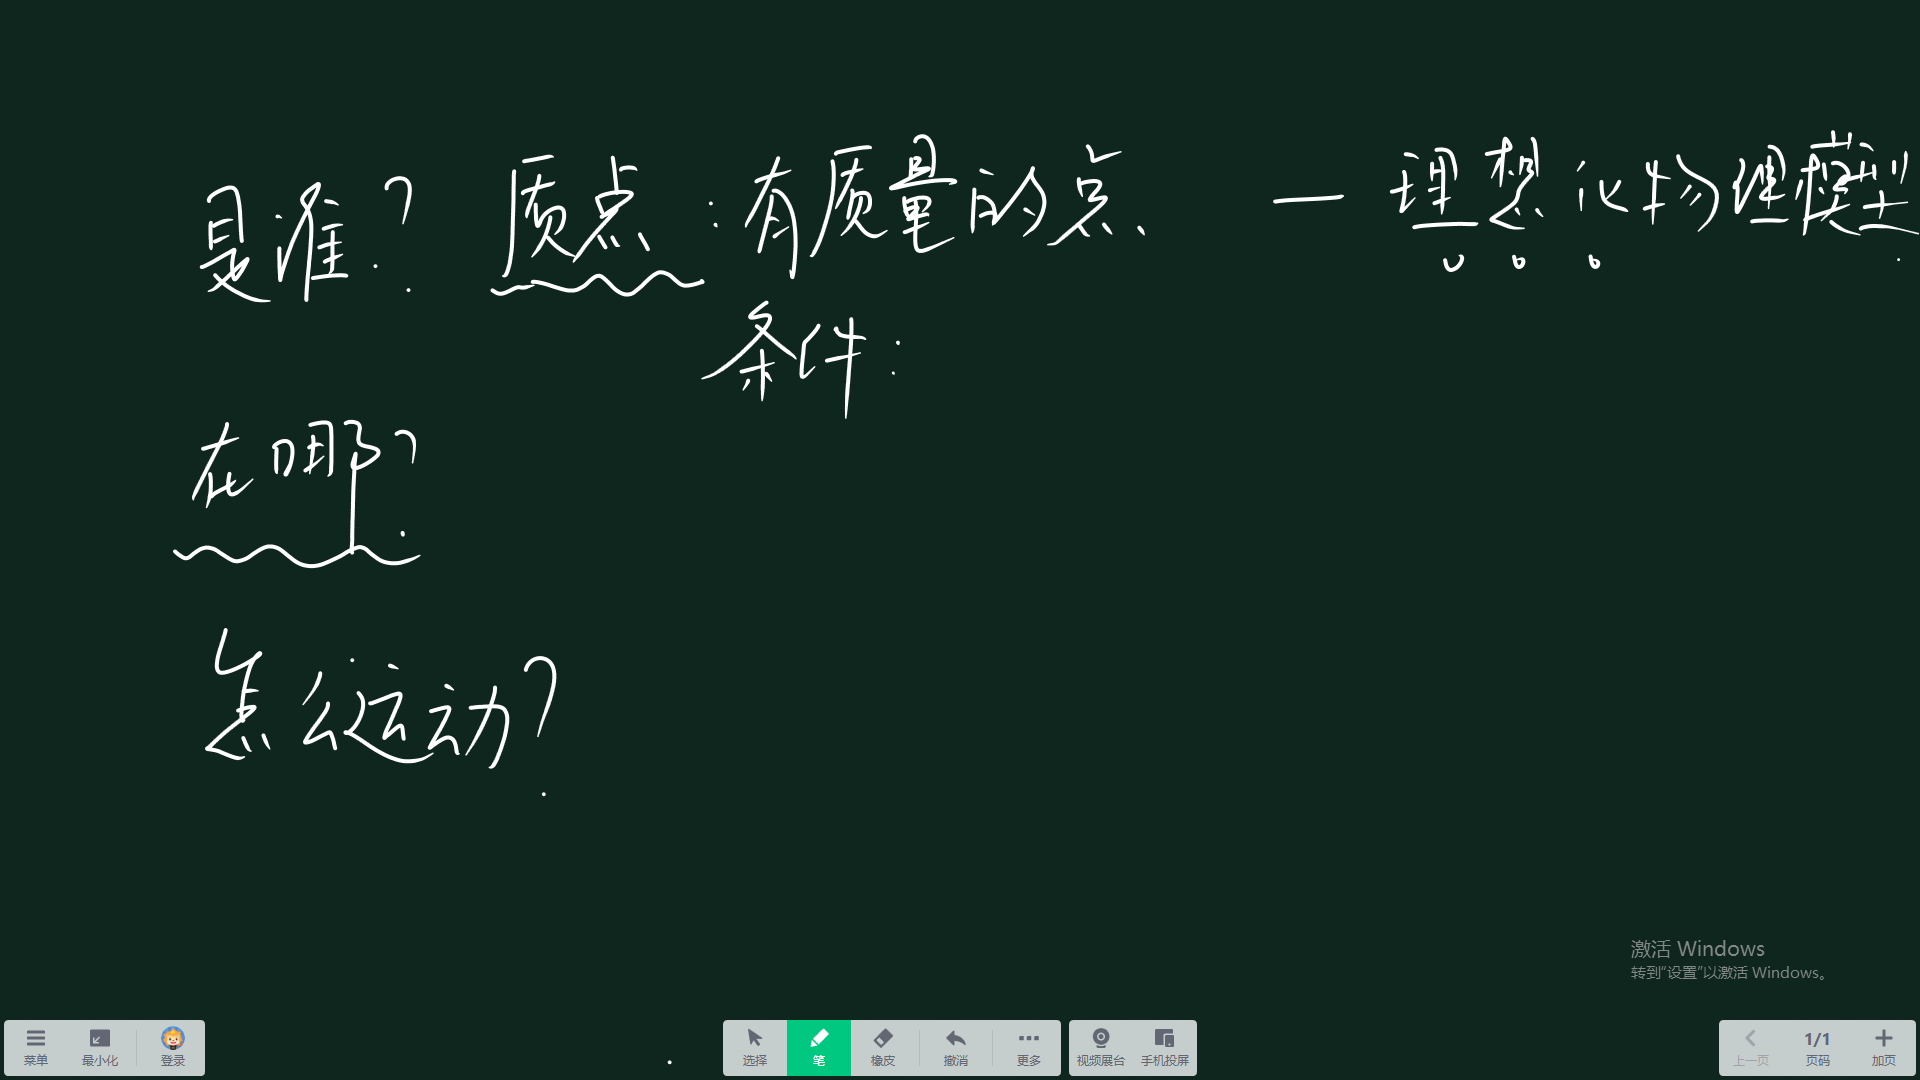 是谁? 质点:有质量的点、 — 理想化物理模型.
条件:
在哪?
怎么运动?
激活 Windows
转到“设置”以激活 Windows。
菜单 最小化 登录 选择 笔 橡皮 撤消 更多 视频展台 手机投屏 上一页 1/1 页码 加页